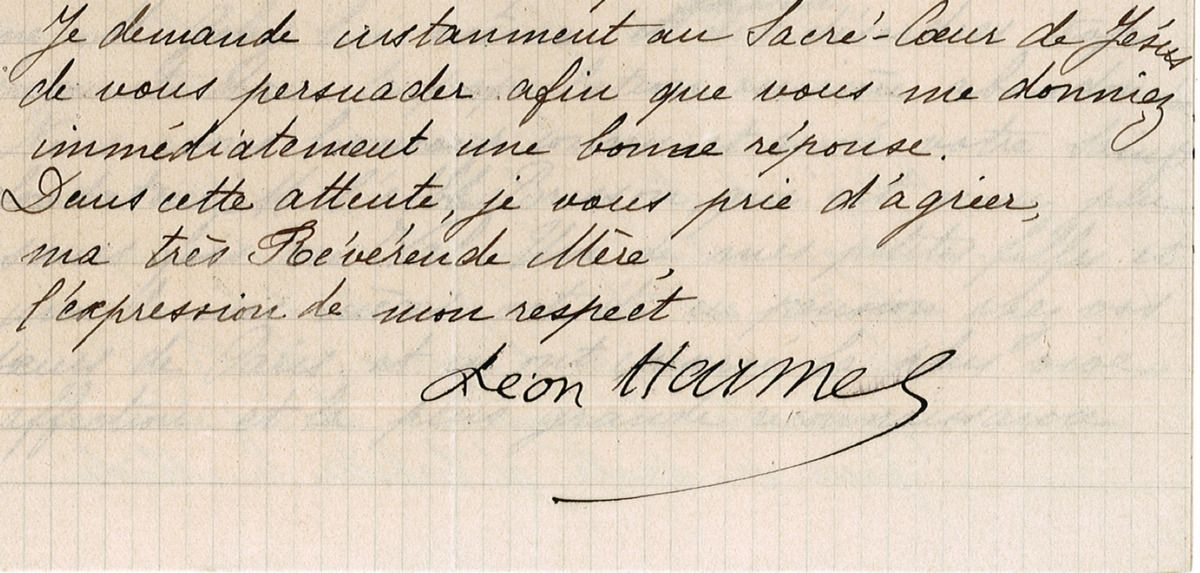 Je demande instamment au Sacré-Cœur de Jésus
de vous persuader afin que vous me donniez
immédiatement une bonne réponse.
Dans cette attente, je vous prie d'agréer,
ma très Révérende Mère,
l'expression de mon respect
Léon Harmel